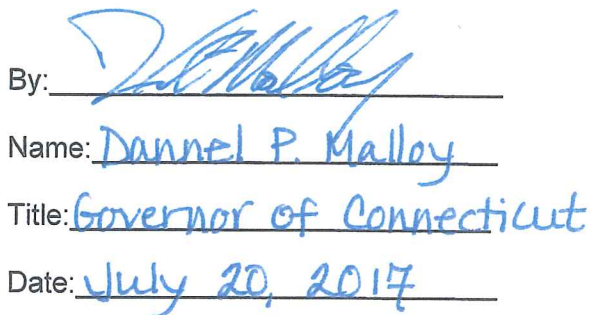 By:
Name: Dannel P. Malloy
Title: Governor of Connecticut
Date: July 20, 2017